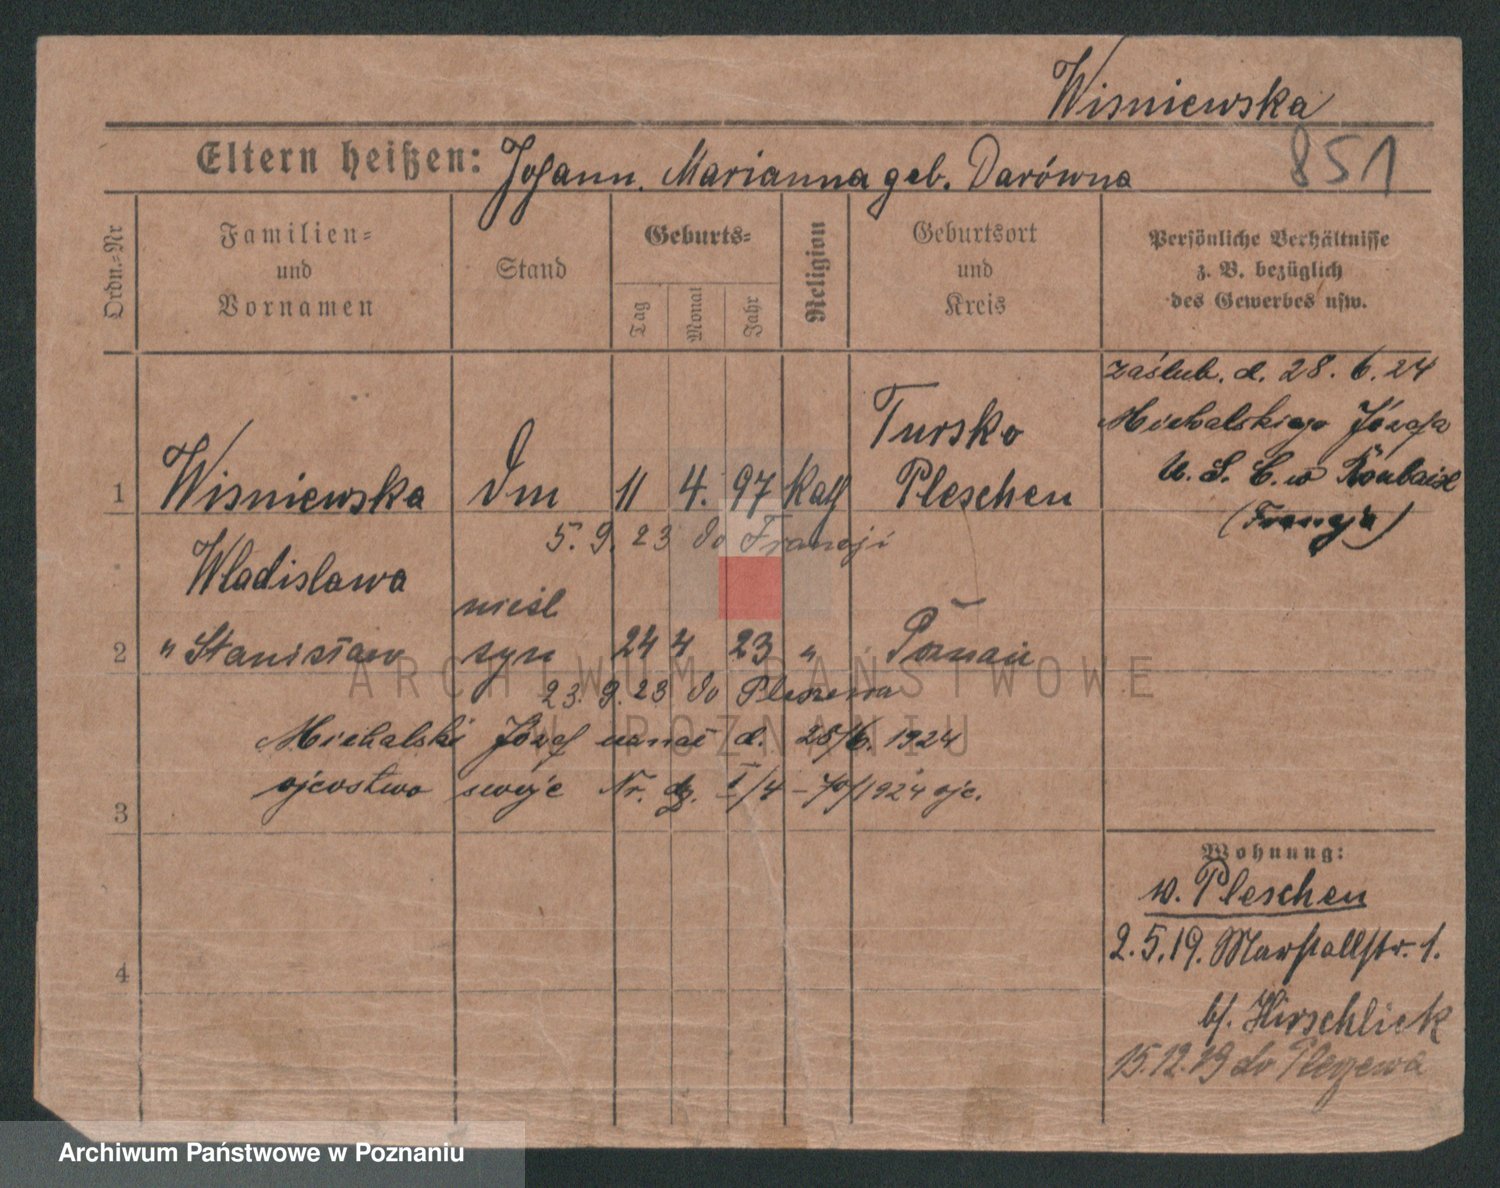 Wisniewska
851
Eltern heißen: Johann. Marianna geb. Darówna
Ordn.-Nr
Familien-
und
Vornamen
Stand
Geburts-
Tag
Monat
Jahr
Religion
Geburtsort
und
Kreis
Persönliche Verhältnisse
z. B. bezüglich
des Gewerbes usw.
zaślub. d. 28. 6. 24
Michalskiego Józefa
U. S. C. w Roubaix
(Francja)
Tursko
1 Wisniewska Dm 11 4. 97 Kath Pleschen
5. 9. 23 do Francji
Wladislawa
nieśl
2 " Stanisław syn 24 4 23 " Poznań
23. 9. 23 do Pleszewa
Michalski Józef uznał d. 28/6. 1924
ojcostwo swoje Nr. dz. I/4 - 70/1924 ojc.
3
4
Wohnung:
w. Pleschen
2. 5. 19. Marstallstr. 1.
b/. Hirschlick
15. 12. 19 do Pleszewa
ARCHIWUM PAŃSTWOWE
W POZNANIU
Archiwum Państwowe w Poznaniu